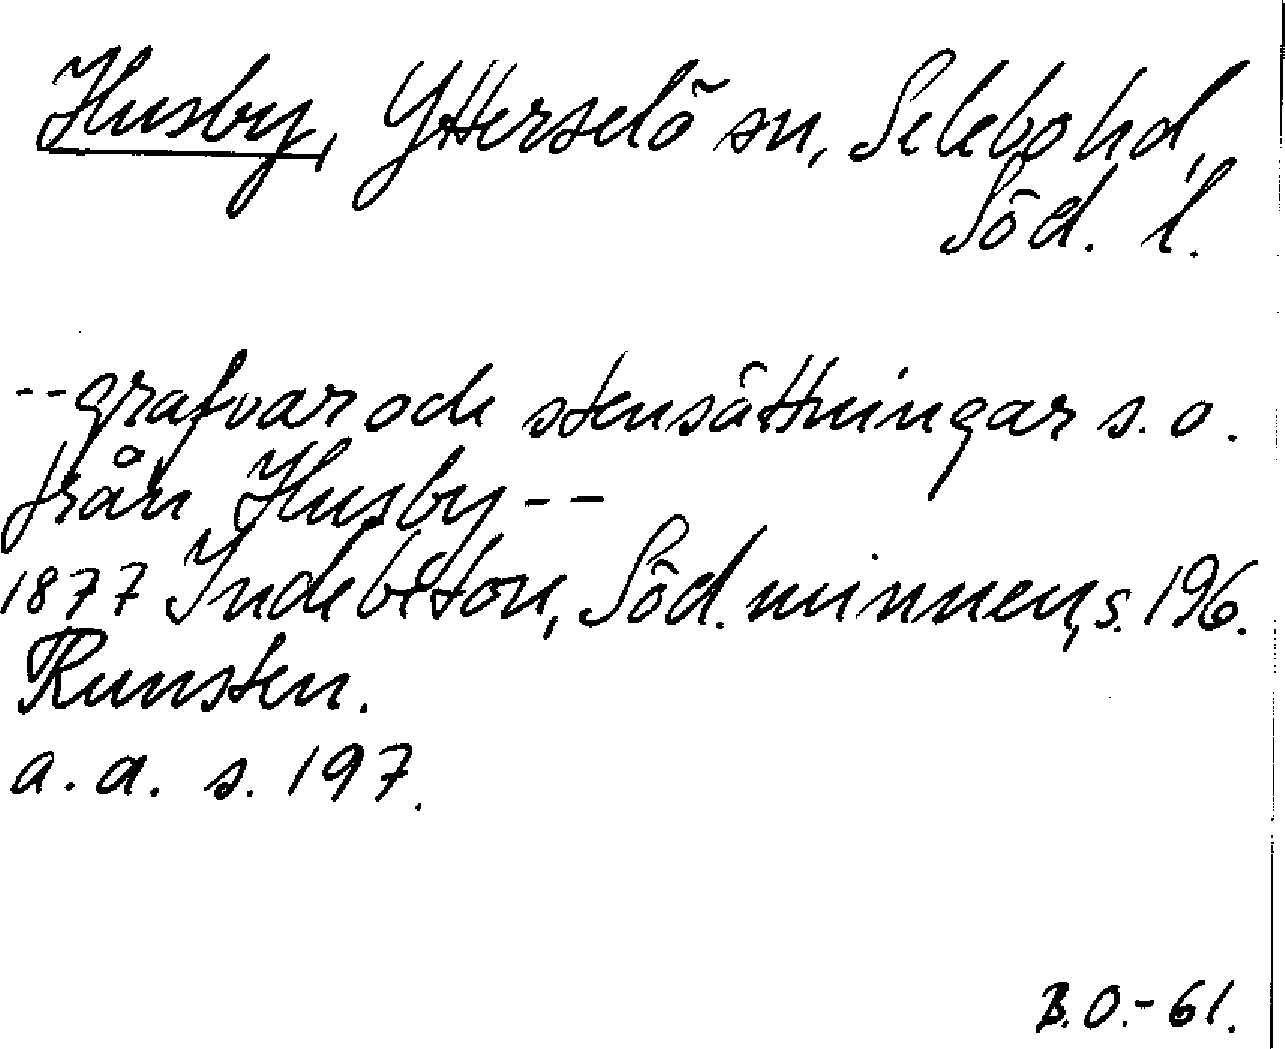 Husby, Ytterselö sn, Selebo hd,
Söd. l.
--grafvar och stensättningar s.o.
från Husby--
1877 Indebetou, Söd. minnen, s. 196.
Runsten.
a. a. s. 197.
B.O.-61.